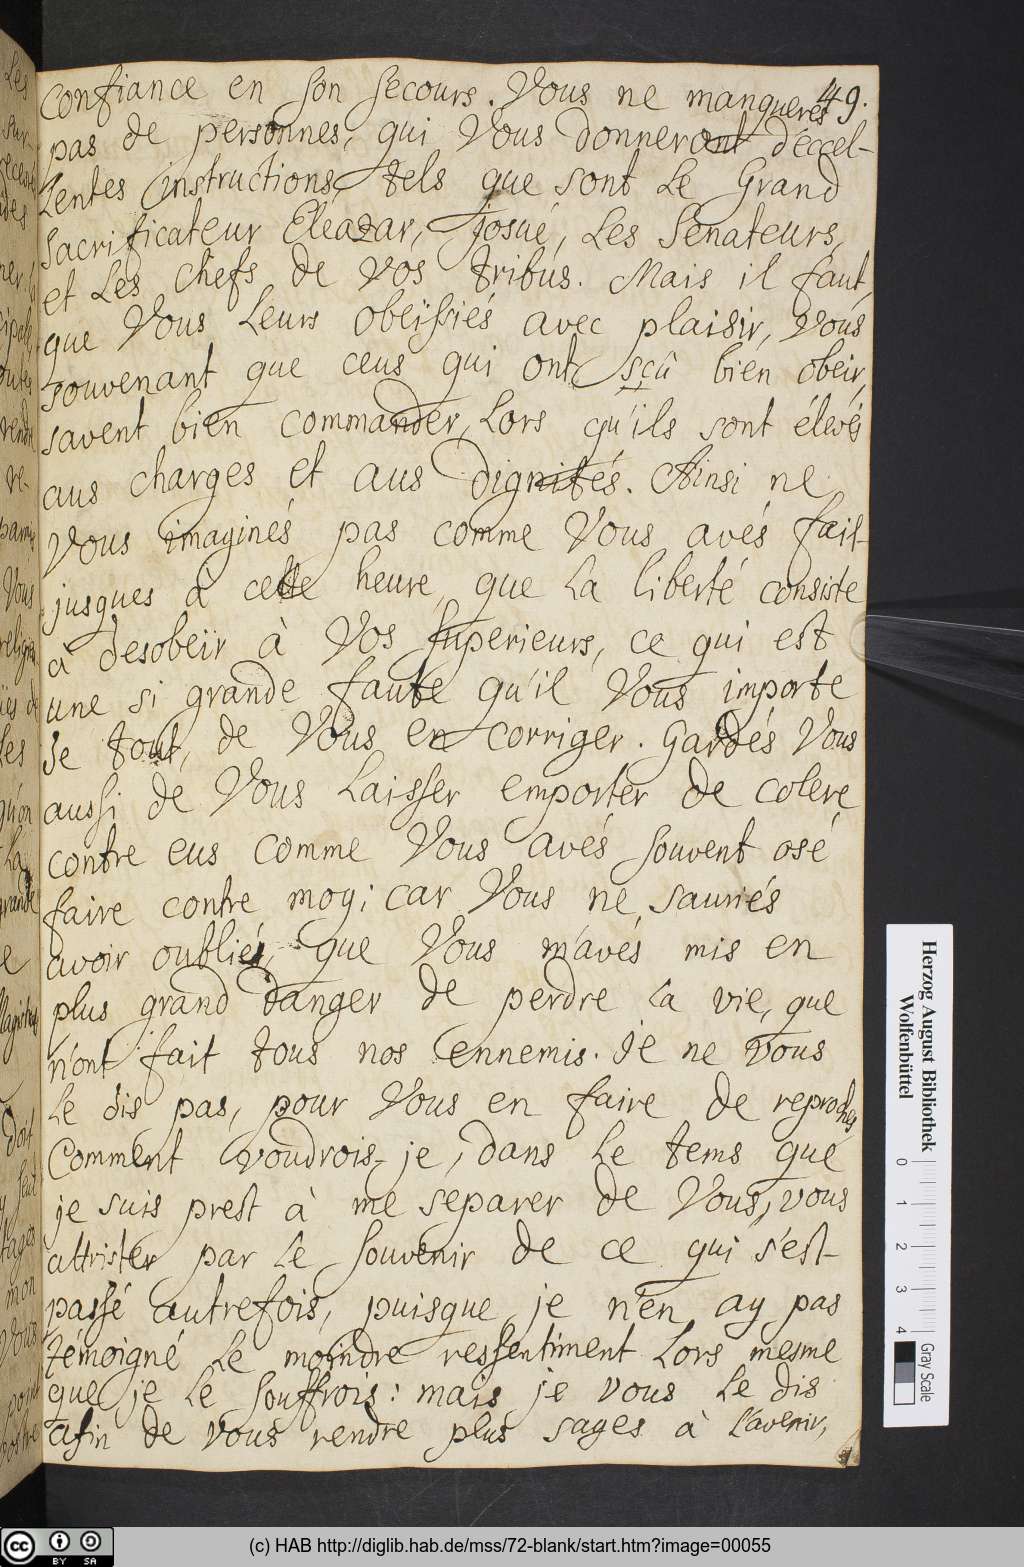 49.
confiance en son secours. Vous ne manquerés
pas de personnes, qui Vous donneront d'éccel-
lentes instructions, tels que sont le Grand
sacrificateur Eléazar, Josué, Les Senateurs,
et Les chefs de vos tribus. Mais il faut,
que Vous Leurs obeïssiés avec plaisir, Vous
souvenant que ceus qui ont sçû bien obeir,
savent bien commander, Lors qu'ils sont élevés
aus charges et aus dignités. Ainsi ne
Vous imaginés pas comme Vous avés fait
jusques à cette heure, que La liberté consiste
à desobeïr à Vos Superieurs, ce qui est
une si grande faute qu'il Vous importe
de tout, de Vous en corriger. Gardés Vous
aussi de Vous Laisser emporter de colere
contre eus comme Vous avés souvent osé
faire contre moy; car Vous ne sauriés
avoir oublié, que Vous m'avés mis en
plus grand danger de perdre La vie, que
n'ont fait tous nos ennemis. Je ne vous
Le dis pas, pour Vous en faire de reproches
Comment voudrois-je, dans Le tems que
je suis prest à me separer de Vous, vous
attrister par Le souvenir de ce qui s'est
passé autrefois, puisque je n'en ay pas
témoigné Le moindre ressentiment Lors mesme
que je Le souffrois: mais je vous Le dis
afin de vous rendre plus sages à L'avenir,
Herzog August Bibliothek
Wolfenbüttel
0 1 2 3 4
Gray Scale
cc BY SA
(c) HAB http://diglib.hab.de/mss/72-blank/start.htm?image=00055